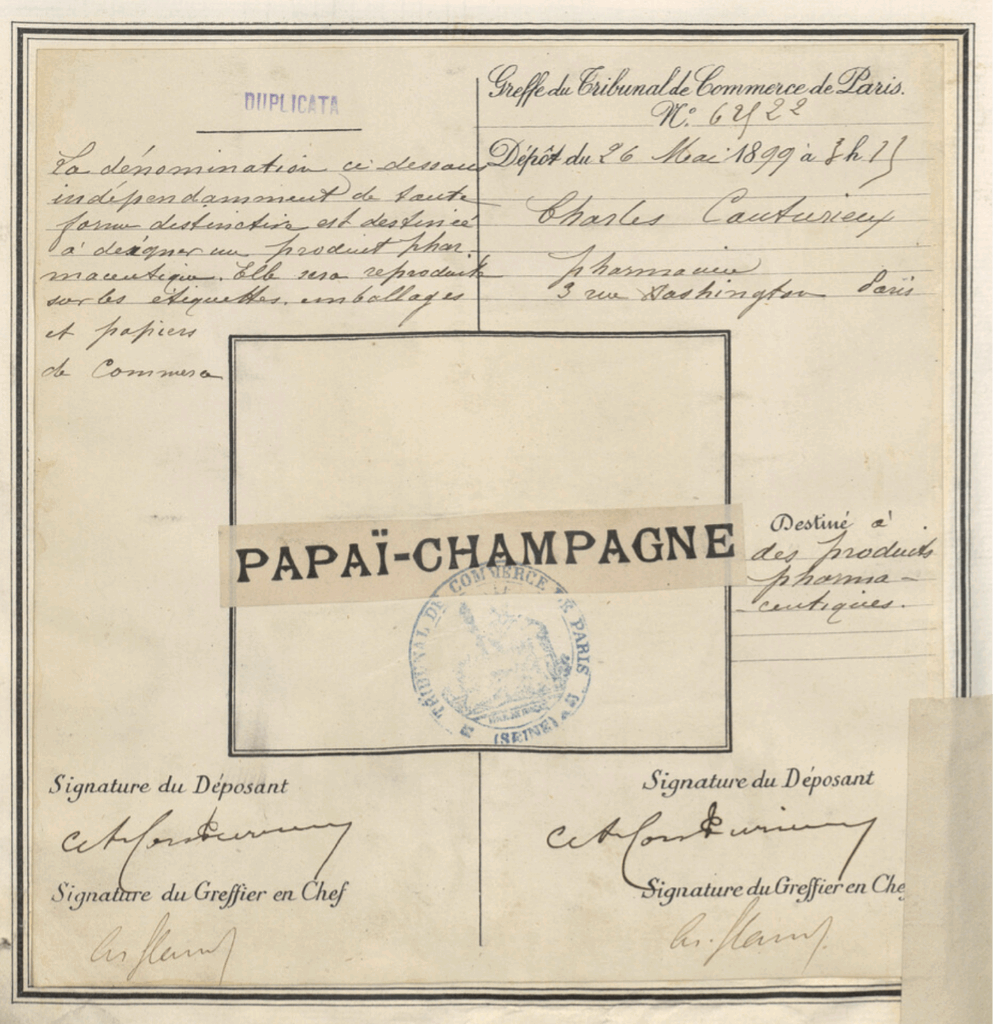 DUPLICATA
La dénomination ci dessous
indépendamment de toute
forme distinctive est destinée
à désigner un produit phar-
maceutique. Elle sera reproduite
sur les étiquettes. emballages
et papiers
de Commerce
Greffe du Tribunal de Commerce de Paris.
N°
Dépôt du 26 Mai 1899 à 3 h
Charles Couturieux
pharmacien
3 rue Washington Paris
PAPAÏ-CHAMPAGNE
TRIBUNAL DE COMMERCE DE PARIS
(SEINE)
Destiné à
des produits
pharma-
ceutiques.
Signature du Déposant
Signature du Greffier en Chef
Signature du Déposant
Signature du Greffier en Che